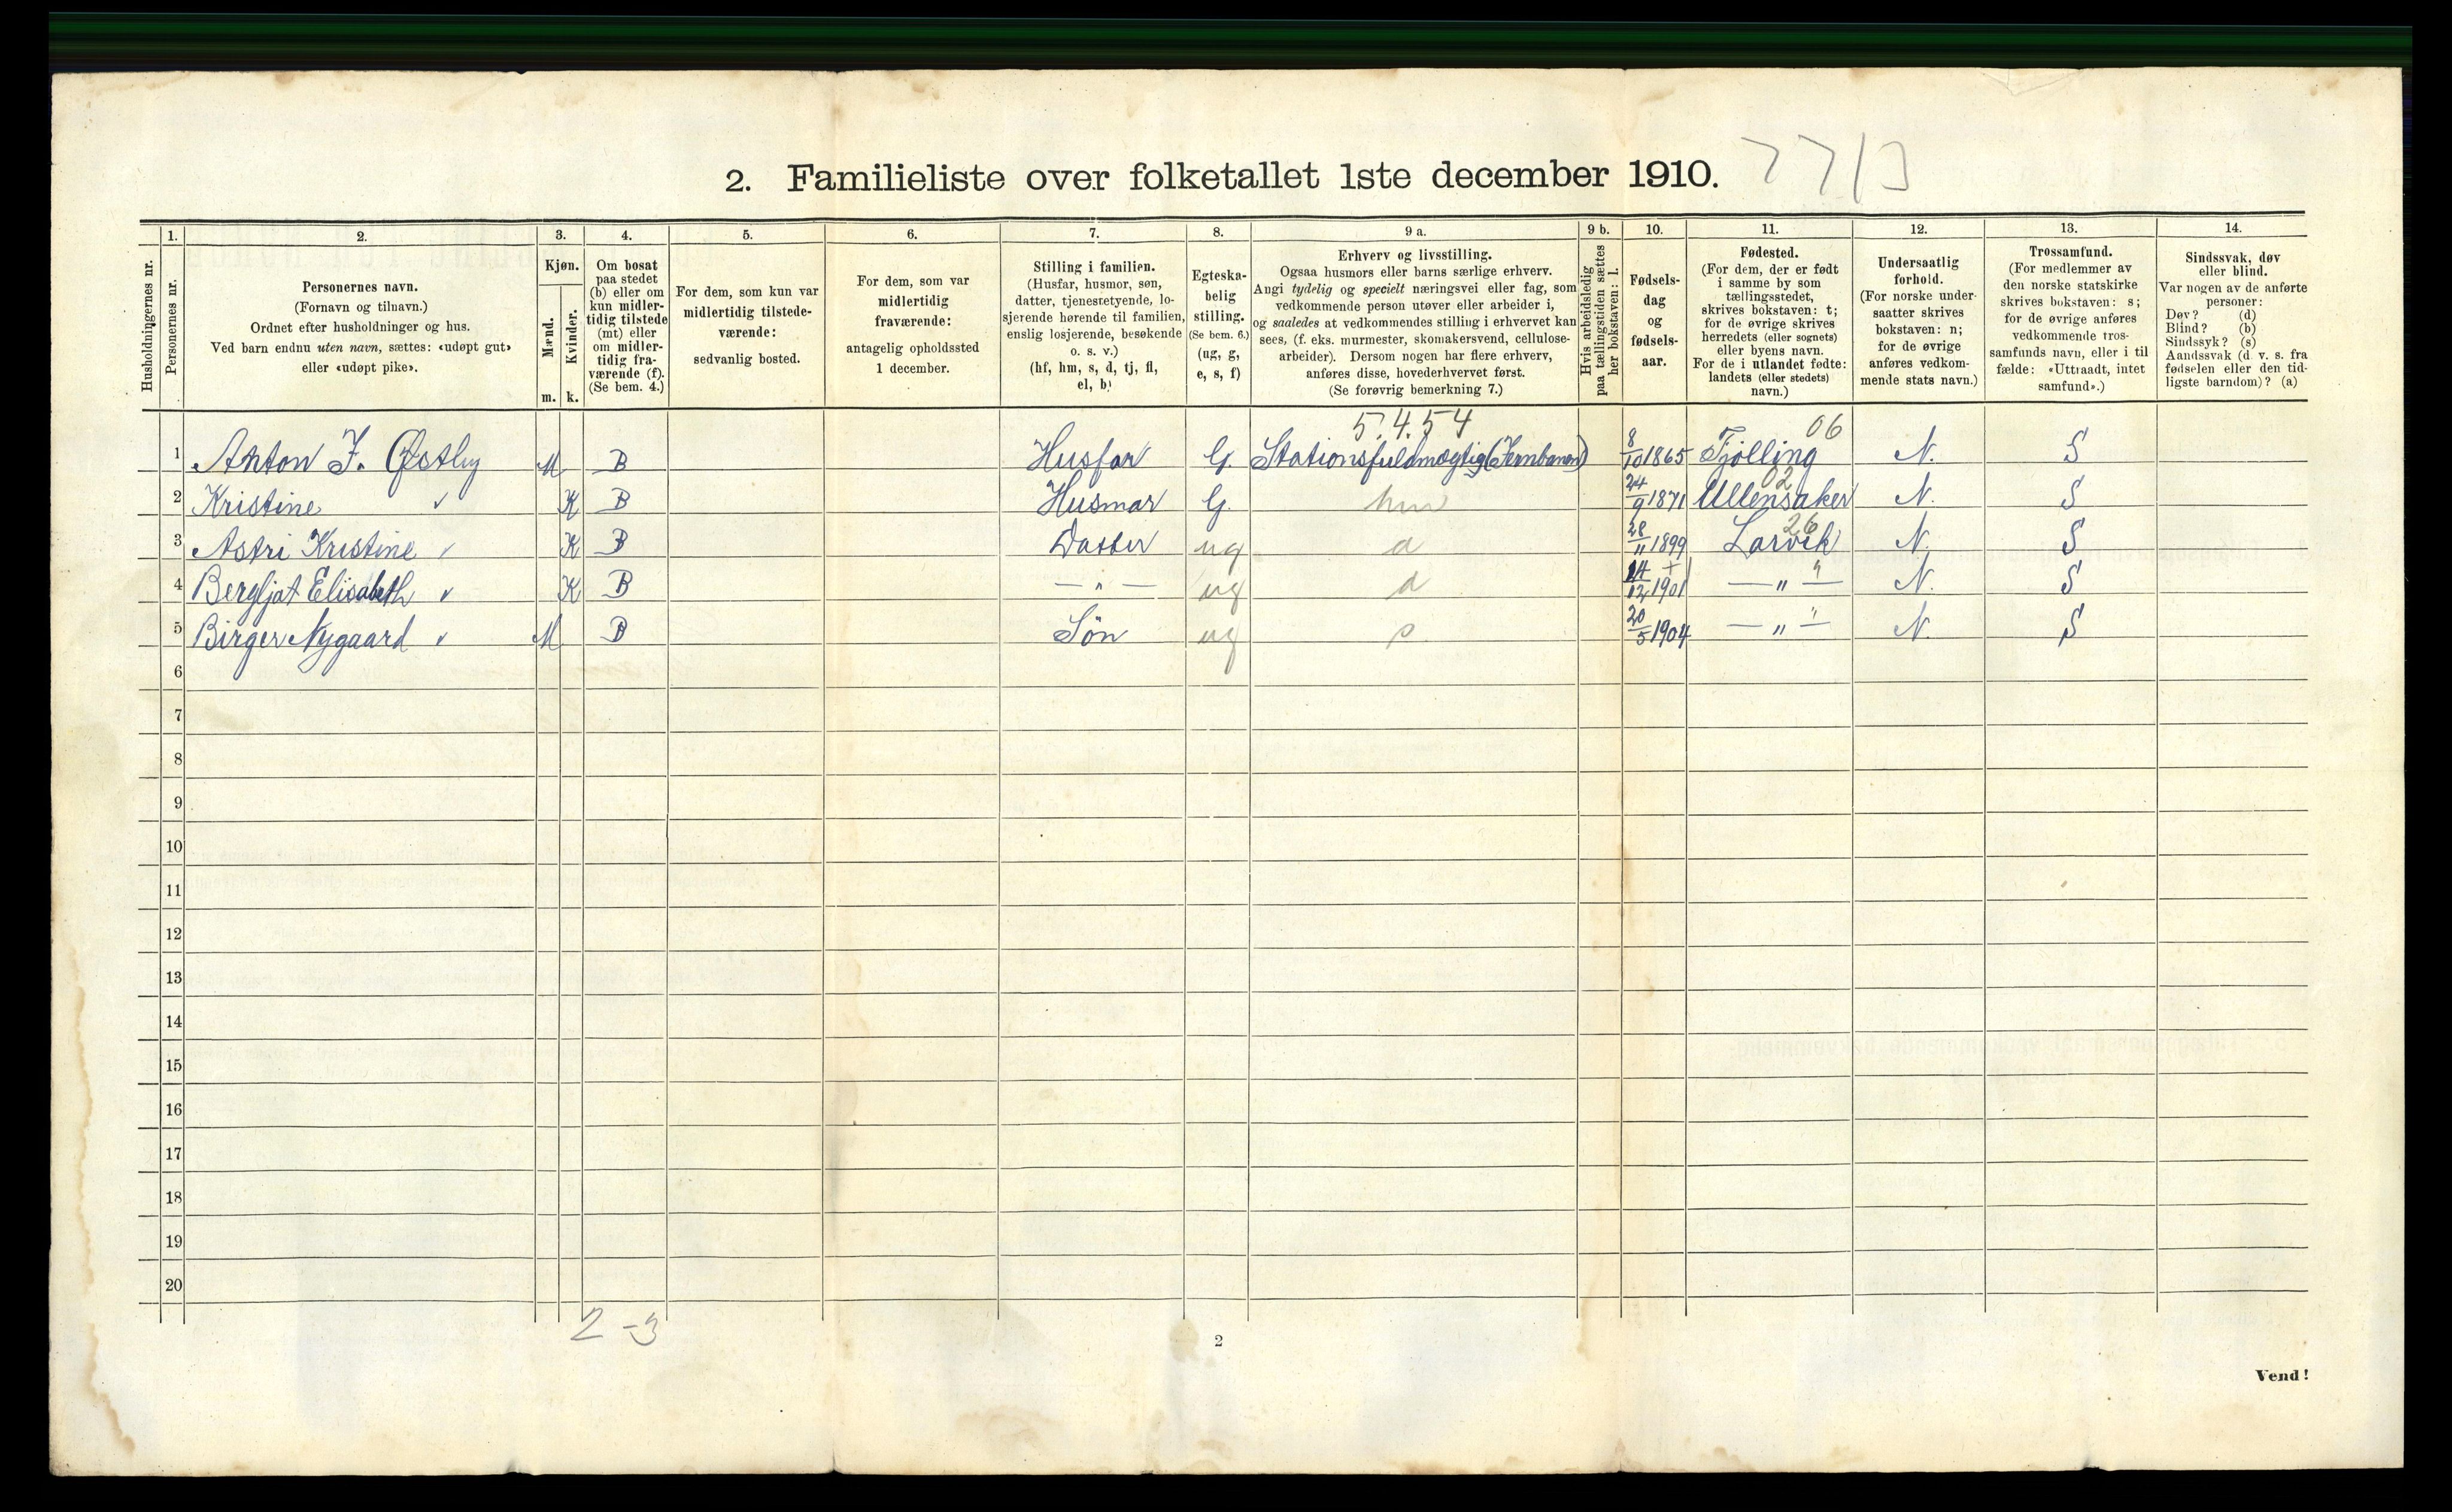 2. Familieliste over folketallet 1ste december 1910. 77/3
Husholdningernes nr.
1.
Personernes nr.
2.
Personernes navn.
(Fornavn og tilnavn.)
Ordnet efter husholdninger og hus.
Ved barn endnu uten navn, sættes: «udøpt gut»
eller «udøpt pike».
3.
Kjøn.
Mænd.
Kvinder.
m. k.
4.
Om bosat
paa stedet
(b) eller om
kun midler-
tidig tilstede
(mt) eller
om midler-
tidig fra-
værende (f).
(Se bem. 4.)
5.
For dem, som kun var
midlertidig tilstede-
værende:
sedvanlig bosted.
6.
For dem, som var
midlertidig
fraværende:
antagelig opholdssted
1 december.
7.
Stilling i familien.
(Husfar, husmor, søn,
datter, tjenestetyende, lo-
sjerende hørende til familien,
enslig losjerende, besøkende
o. s. v.)
(hf, hm, s, d, tj, fl,
el, b)
8.
Egteska-
belig
stilling.
(Se bem. 6.)
(ug, g,
e, s, f)
9 a.
Erhverv og livsstilling.
Ogsaa husmors eller barns særlige erhverv.
Angi tydelig og specielt næringsvei eller fag, som
vedkommende person utøver eller arbeider i,
og saaledes at vedkommendes stilling i erhvervet kan
sees, (f. eks. murmester, skomakersvend, cellulose-
arbeider). Dersom nogen har flere erhverv,
anføres disse, hovederhvervet først.
(Se forøvrig bemerkning 7.)
9 b.
Hvis arbeidsledig
paa tællingstiden sættes
her bokstaven: l.
10.
Fødsels-
dag
og
fødsels-
aar.
11.
Fødested.
(For dem, der er født
i samme by som
tællingsstedet,
skrives bokstaven: t;
for de øvrige skrives
herredets (eller sognets)
eller byens navn.
For de i utlandet fødte:
landets (eller stedets)
navn.)
12.
Undersaatlig
forhold.
(For norske under-
saatter skrives
bokstaven: n;
for de øvrige
anføres vedkom-
mende stats navn.)
13.
Trossamfund.
(For medlemmer av
den norske statskirke
skrives bokstaven: s;
for de øvrige anføres
vedkommende tros-
samfunds navn, eller i til
fælde: «Uttraadt, intet
samfund».)
14.
Sindssvak, døv
eller blind.
Var nogen av de anførte
personer:
Døv? (d)
Blind? (b)
Sindssyk? (s)
Aandssvak (d. v. s. fra
fødselen eller den tid-
ligste barndom)? (a)
5.4.54 06
1 Anton F. Østby M B Husfar G. Stationsfuldmægtig (Jernbanen) 8/10 1865 Tjølling N. S
02
2 Kristine " K B Husmor G. hm 24/9 1871 Ullensaker N. S
26
3 Astri Kristine " K B Datter ug d 28/11 1899 Larvik N. S
4 Bergljot Elisabeth " K B — " — ug d 14/12 1901 — " — N. S
5 Birger Nygaard " M B Sön ug s 20/5 1904 — " — N. S
6
7
8
9
10
11
12
13
14
15
16
17
18
19
20
2 - 3
2
Vend!